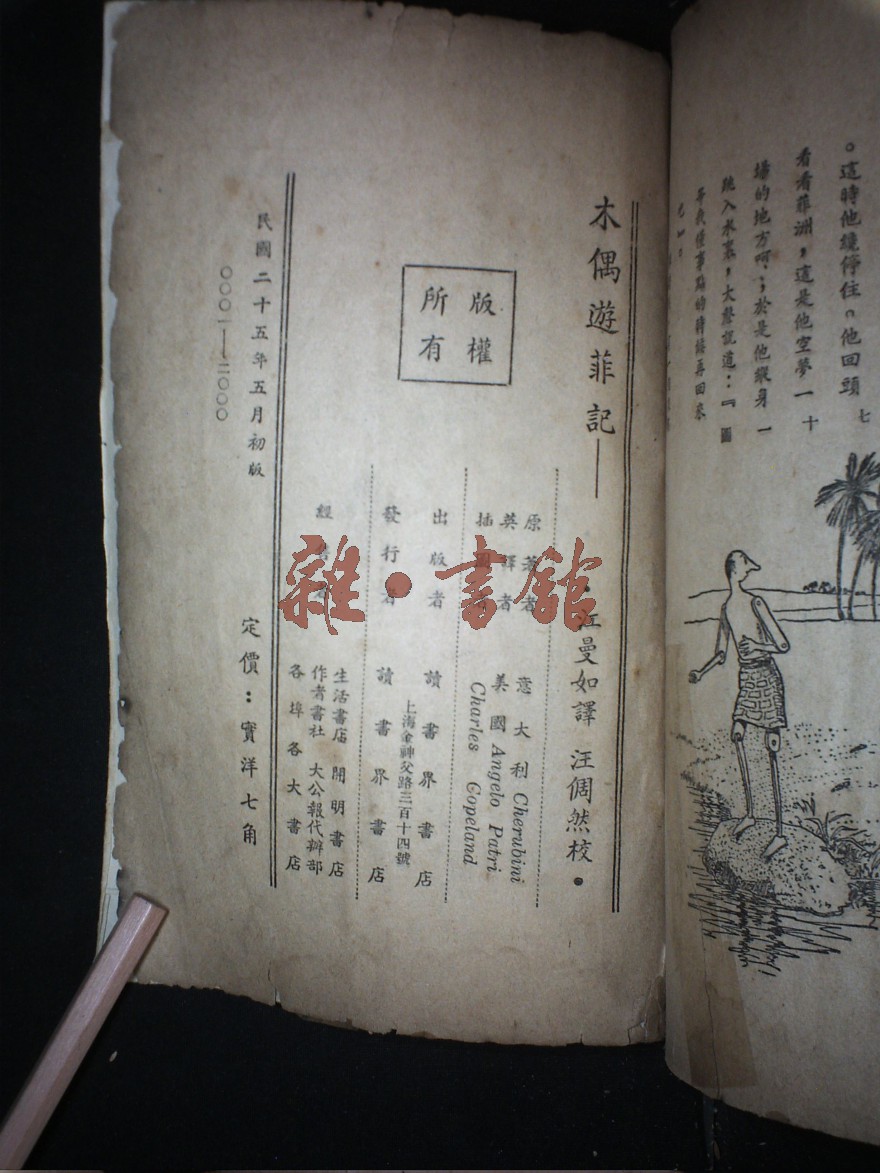 。這時他纔停住。他回頭
看看菲洲,這是他空夢一
場的地方呵;於是他縱身一
跳入水裏,大聲說道:『
的時候再回來
七十一圖
木偶遊菲記——
江曼如譯 汪倜然校・
版權
所有
原著者 意大利 Cherubini
英譯者 美國 Angelo Patri
插圖者 Charles Copeland
出版者 讀書界書店
上海金神父路三百十四號
發行者 讀書界書店
經售者 生活書店 開明書店
作者書社 大公報代辦部
各埠各大書店
民國二十五年五月初版
〇〇〇一——二〇〇〇
定價:實洋七角
雜・書館